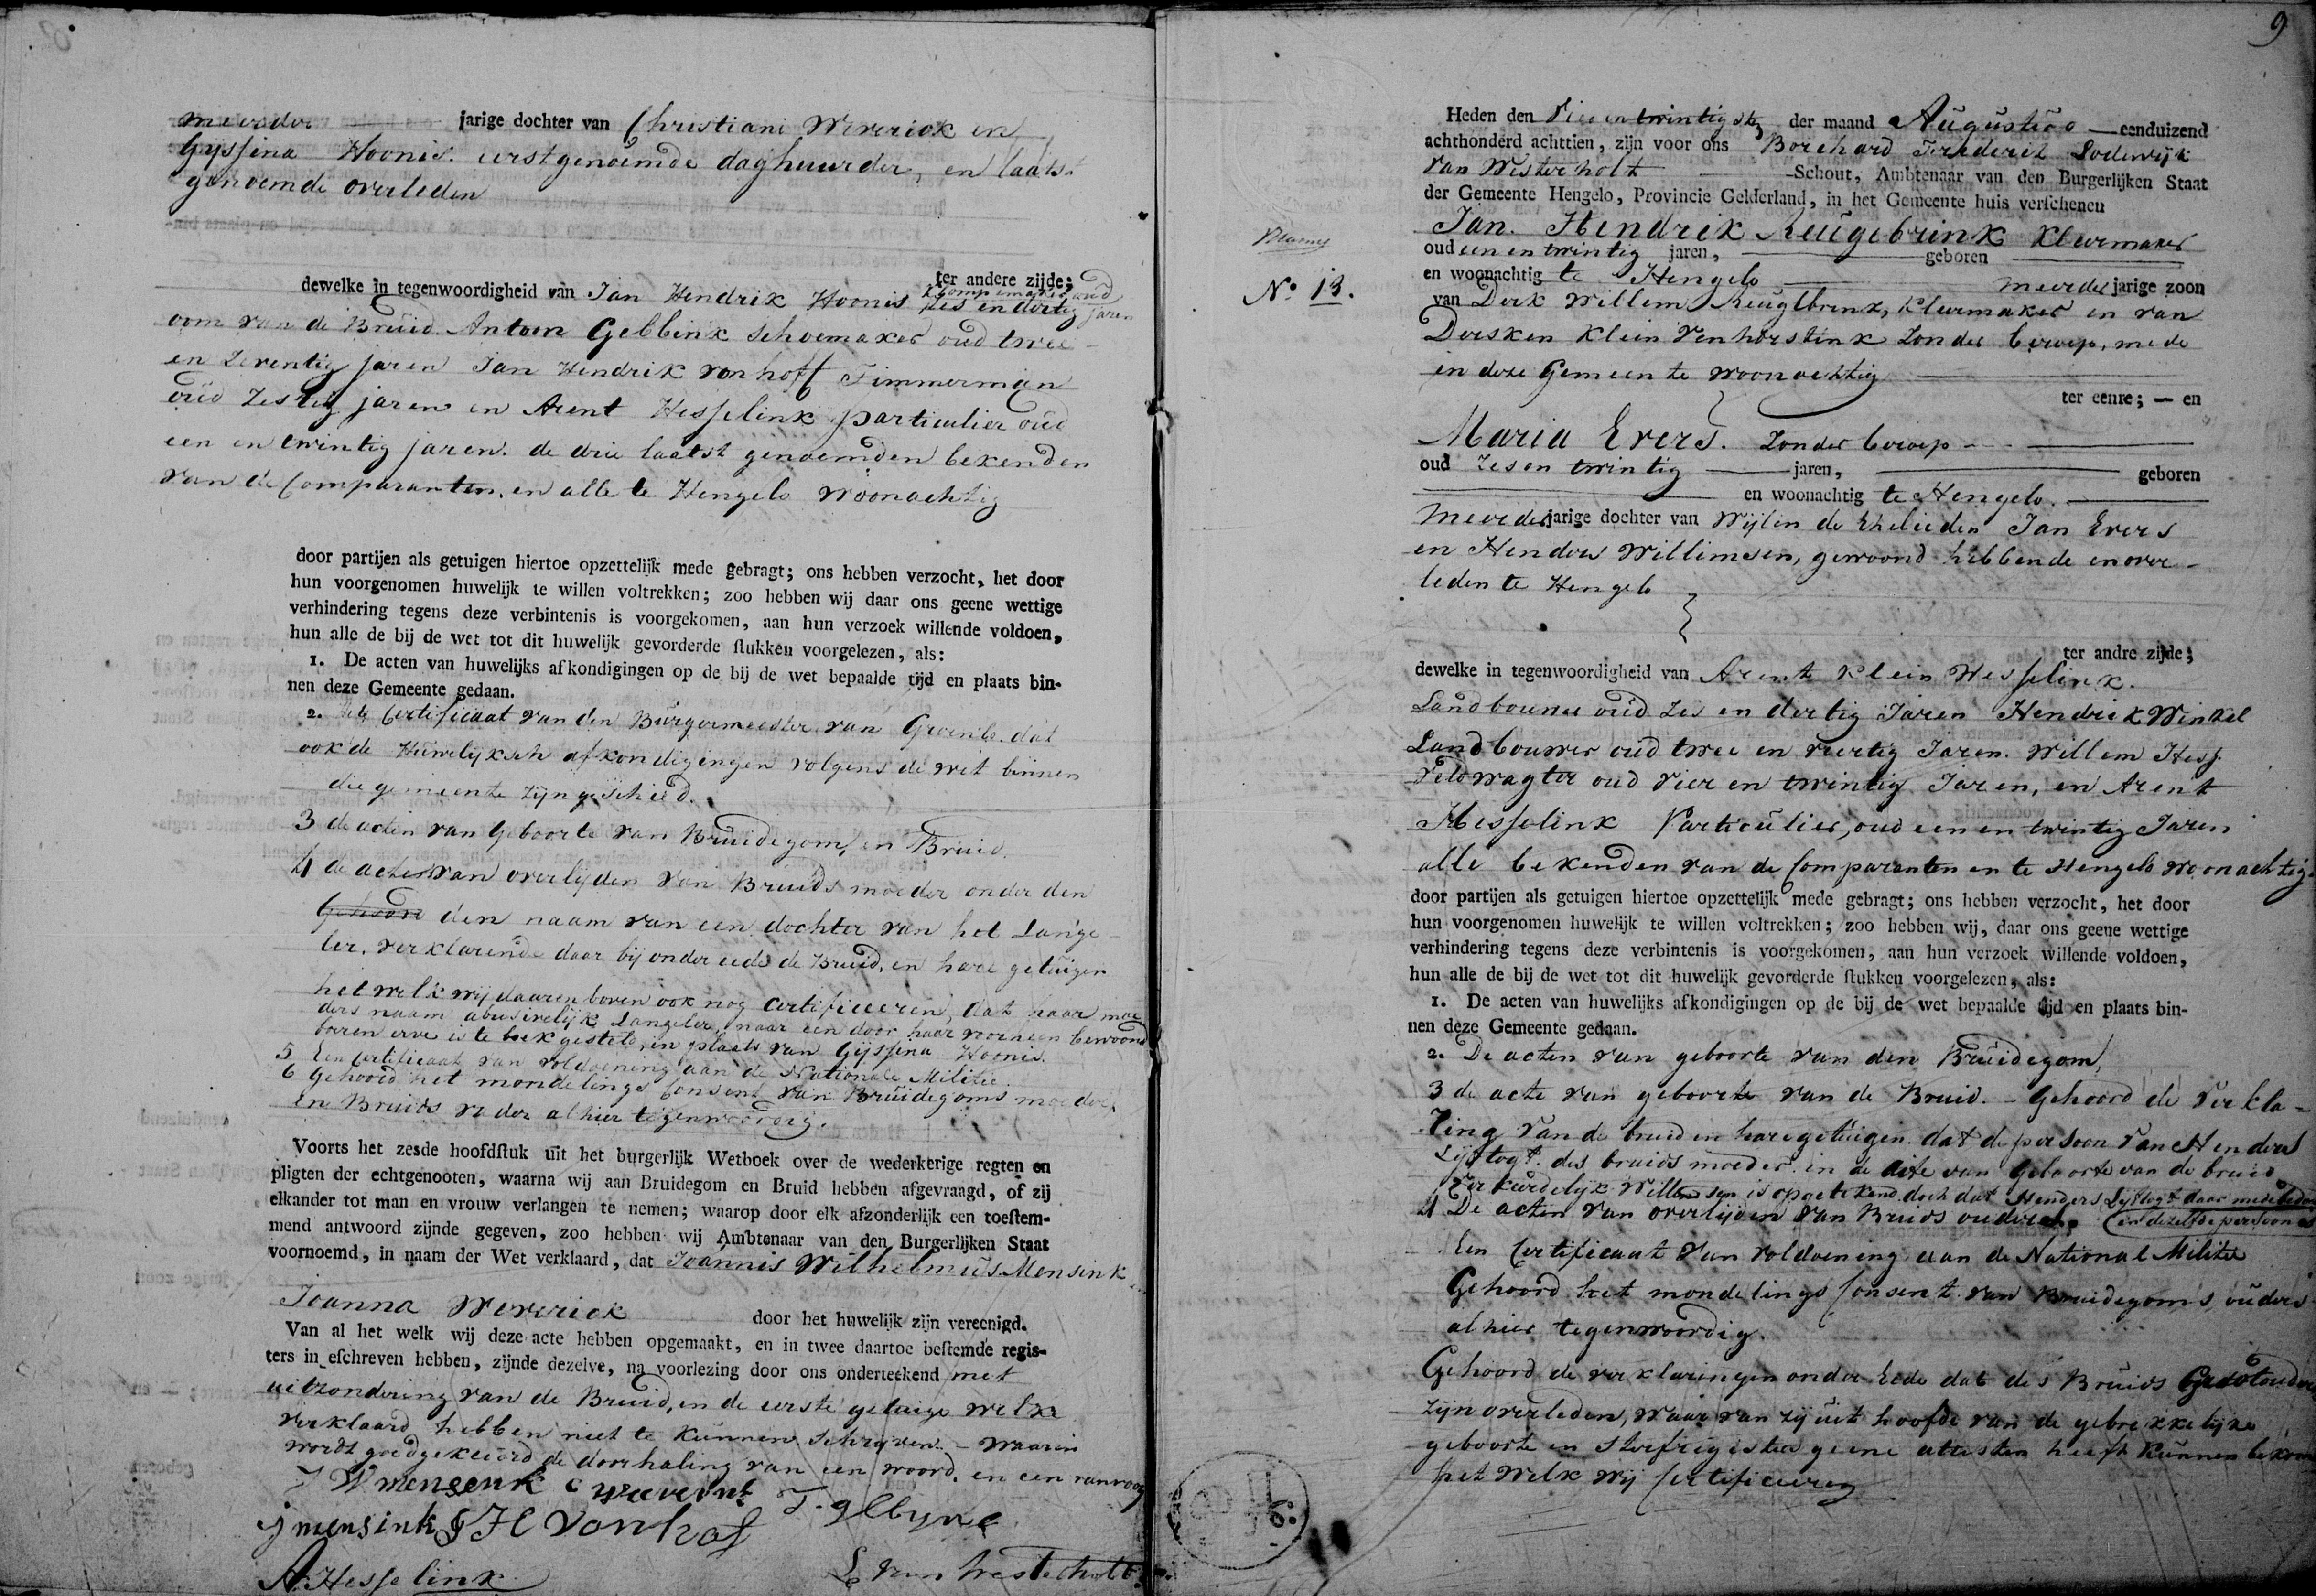 meerder jarige dochter van Christiani Weverick en
Gyssina Hoonis. eerstgenoemde daghuurder, en laatst
genoemde overleden
ter andere zijde;
dewelke in tegenwoordigheid van Jan Hendrik Hoonis klompemaker oud
zes en dertig jaren
oom van de Bruid. Antoon Gebbink schoemaker oud twee
en zeventig jaren Jan Hendrik vonhoff Timmerman
oud zestig jaren en Arent Hesselink particulier oud
een en twintig jaren. de drie laatst genoemden bekenden
van de Comparanten, en alle te Hengelo woonachtig
door partijen als getuigen hiertoe opzettelijk mede gebragt; ons hebben verzocht, het door
hun voorgenomen huwelijk te willen voltrekken; zoo hebben wij daar ons geene wettige
verhindering tegens deze verbintenis is voorgekomen, aan hun verzoek willende voldoen,
hun alle de bij de wet tot dit huwelijk gevorderde stukken voorgelezen, als:
1. De acten van huwelijks afkondigingen op de bij de wet bepaalde tijd en plaats bin-
nen deze Gemeente gedaan.
2. Certificaat van den Burgermeester van Groenlo dat
ook de Huwelijksch afkondigingen volgens de wet binnen
die gemeente zijn geschied.
3 de acten van geboorte van Bruidegom, en Bruid.
4 de acten van overlijden van Bruids moeder onder den
den naam van een dochter van het Lange
ler. verklarende daar bij onder eede de Bruid, en hare getuigen
het welk wij daarenboven ook nog certificeeren, dat haar moe
ders naam abusivelijk Langeler, naar een door haar voorheen bewoond
boeren erve is te boek gesteld, in plaats van Gyssina Hoonis.
5 Een certificaat van voldoening aan de Nationale Militie.
6 Gehoord het mondelings consent van Bruidegoms moeder
en Bruids vader alhier tegenwoordig.
Voorts het zesde hoofdstuk uit het burgerlijk Wetboek over de wederkerige regten en
pligten der echtgenooten, waarna wij aan Bruidegom en Bruid hebben afgevraagd, of zij
elkander tot man en vrouw verlangen te nemen; waarop door elk afzonderlijk een toestem-
mend antwoord zijnde gegeven, zoo hebben wij Ambtenaar van den Burgerlijken Staat
voornoemd, in naam der Wet verklaard, dat Joannis Wilhelmus Mensink
Joanna Weverick door het huwelijk zijn vereenigd.
Van al het welk wij deze acte hebben opgemaakt, en in twee daartoe bestemde regis-
ters in eschreven hebben, zijnde dezelve, na voorlezing door ons onderteekend met
uitzondering van de Bruid, en de eerste getuige welke
verklaard hebben niet te kunnen schrijven. - Waarin
wordt goedgekeurd de doorhaling van een woord. en een
J W mensenk
jmensink J H Vonhof
A. Hesselink
9
Heden den Vier en twintigste der maand Augustus eenduizend
achthonderd achttien, zijn voor ons Borchard Frederik Lodewijk
van Westerholt Schout, Ambtenaar van den Burgerlijken Staat
der Gemeente Hengelo, Provincie Gelderland, in het Gemeente huis verschenen
Jan Hendrik Keugebrink Kleermaker
oud een en twintig jaren, geboren
en woonachtig te Hengelo meerder jarige zoon
No 13.
van Derk Willem Keugebrink, Kleermaker en van
Dersken Klein Venhorstink zonder beroep, mede
in deze Gemeente woonachtig
ter eenre; — en
Maria Evers. zonder beroep
oud zes en twintig jaren, geboren
en woonachtig te Hengelo.
meerder jarige dochter van Wijlen de Ehelieden Jan Evers
en Henders Willemsen, gewoond hebbende en over
leden te Hengelo
ter andre zijde;
dewelke in tegenwoordigheid van Arent Klein Hesselink.
Landbouwer oud zes en dertig Jaren Hendrik Winkel
Landbouwer oud twee en veertig Jaren. Willem Hess
Veldwagter oud vier en twintig Jaren, en Arent
Hesselink Particulier, oud een en twintig Jaren
alle bekenden van de Comparanten en te Hengelo woonachtig
door partijen als getuigen hiertoe opzettelijk mede gebragt; ons hebben verzocht, het door
hun voorgenomen huwelijk te willen voltrekken; zoo hebben wij, daar ons geene wettige
verhindering tegens deze verbintenis is voorgekomen, aan hun verzoek willende voldoen,
hun alle de bij de wet tot dit huwelijk gevorderde stukken voorgelezen, als:
1. De acten van huwelijks afkondigingen op de bij de wet bepaalde tijd en plaats bin-
nen deze Gemeente gedaan.
2. De acten van geboorte van den Bruidegom,
3 de acte van geboorte van de Bruid. - Gehoord de verkla=
ring van de bruid en hare getuigen. dat de persoon van Henders
des bruids moeder. in de acte van geboorte van de bruid
verkeerdelijk Willemsen is opgetekend doch dat Henders daar mede
en dezelfde persoon is
4 De acten van overlijden van Bruids ouders.
Een Certificaat van voldoening aan de National Militie
Gehoord het mondelings Consent van Bruidegoms, ouders
alhier tegenwoordig.
Gehoord de verklaringen onder Eede dat des Bruids Grootouders
zijn overleden, waar van zij uit hoofde van de gebrekkelijke
geboorte en sterfregister geene attesten heeft kunnen
het welk wij Certificeeren